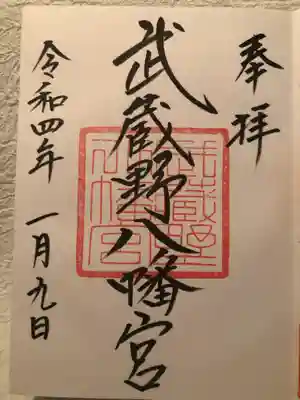 奉拝
武蔵野八幡宮
令和四年 一月九日
武蔵野八幡宮